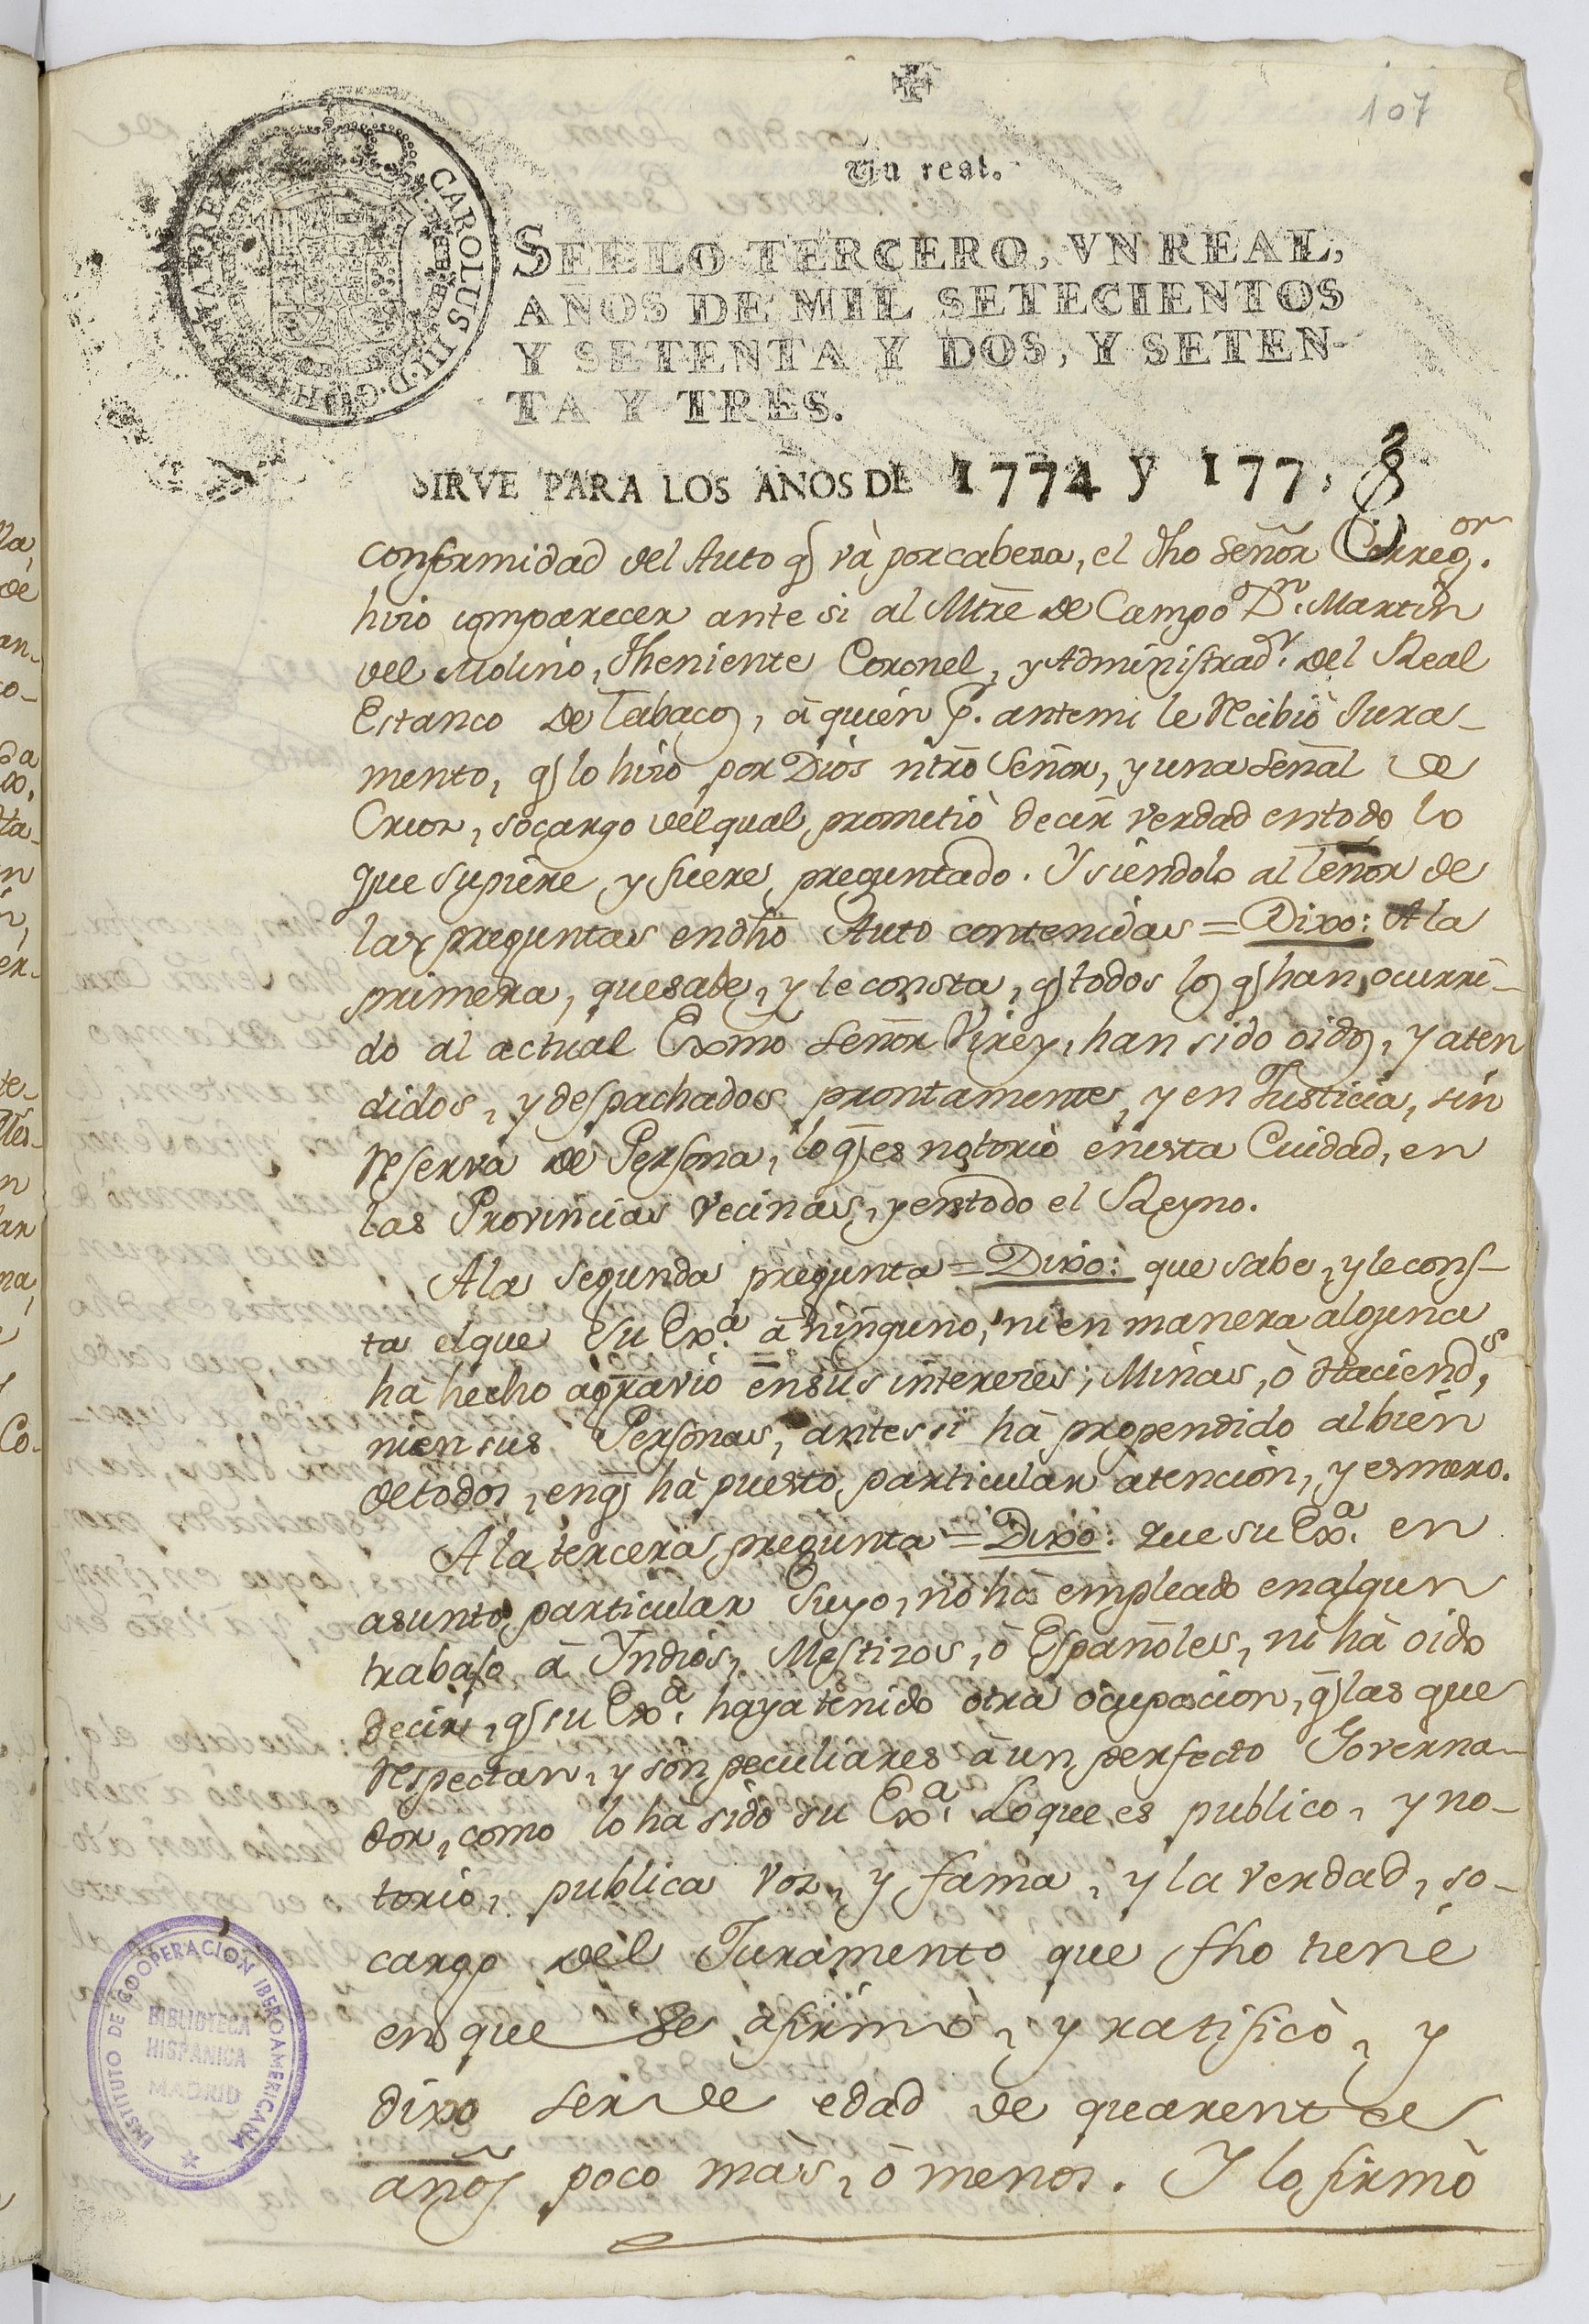 107
Un real.
SELLO TERCERO, VN REAL,
AÑOS DE MIL SETECIENTOS
Y SETENTA Y DOS, Y SETEN-
TA Y TRES.
CAROLUS III. D. G. HISPANIAR. REX
SIRVE PARA LOS AÑOS DE 1774 y 177
conformidad del Auto q̃ và por cabeza, el dho Señor Corregᵒʳ.
hizo comparecer ante si al Mtr̃e de Campo Dⁿ. Martin
del Molino, Theniente Coronel, y Administradʳ. del Real
Estanco de Tabacos, à quien p̱. antemi le recibiò Jura-
mento, q̃ lo hizo por Dios ntr̃o Señor, y una señal de
Cruz, socargo del qual prometiò decir verdad en todo lo
que supiere y fuere preguntado. Y siendolo al tenor de
las preguntas en dho Auto contenidas = Dixo: A la
primera, que sabe, y le consta, q̃ todos los q̃ han ocurri-
do al actual Exmõ Señor Virey, han sido oidos, y aten
didos, y despachados prontamente, y en Justicia, sin
reserva de Persona, lo q̃ es notorio en esta Cuidad, en
las Provincias vecinas, y en todo el Reyno.
A la segunda pregunta = Dixo: que sabe, y le cons-
ta el que Su Exᵃ. à ninguno, ni en manera alguna
hà hecho agravio en sus intereses, Minas, ò Haciendˢ,
ni en sus Personas, antes si hà propendido al bien
de todos, en q̃ hà puesto particular atencion, y esmero.
A la tercera pregunta = Dixo: que su Exᵃ. en
asunto particular Suyo, no hà empleado en algun
trabajo à Yndios, Mestizos, ò Españoles, ni hà oido
decir, q̃ su Exᵃ. haya tenido otra ocupacion, q̃ las que
respectan, y son peculiares à un perfecto Governa-
dor, como lo hà sido su Exᵃ. Lo que es publico, y no-
torio, publica voz, y fama, y la verdad, so-
cargo del Juramento que fho tiene
en que se afirmò, y ratificò, y
dixo ser de edad de quarenta
años poco màs, ò menos. Y lo firmò
INSTITUTO DE COOPERACION IBEROAMERICANA
BIBLIOTECA
HISPANICA
MADRID